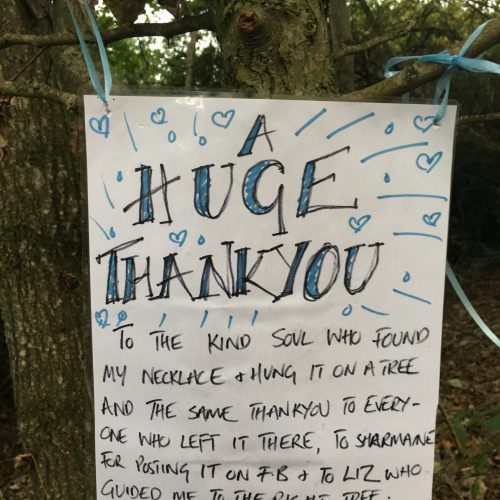 A
HUGE
THANKYOU
TO THE KIND SOUL WHO FOUND
MY NECKLACE & HUNG IT ON A TREE
AND THE SAME THANKYOU TO EVERY-
ONE WHO LEFT IT THERE, TO SHARMAINE
FOR POSTING IT ON FB & TO LIZ WHO
GUIDED ME TO THE RIGHT TREE.